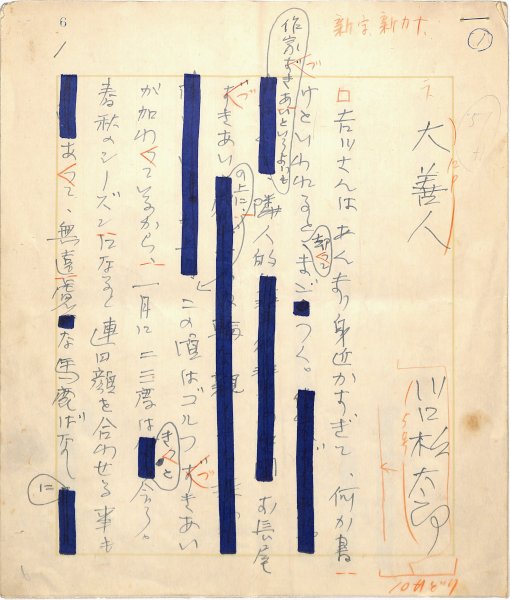 6
新字新カナ
大善人
川口松太郎
吉川さんはあんまり身近かすぎて、何か書
けといわれると、却ってまごつく。
作家ずきあいというよりも
隣人的 お長屋
ずきあい の上に、
この頃はゴルフずきあい
が加わっているから、一月に二三度はきっと会う。
春秋のシーズンになると連日顔を合わせる事も
あって、無遠慮な馬鹿ばなしに